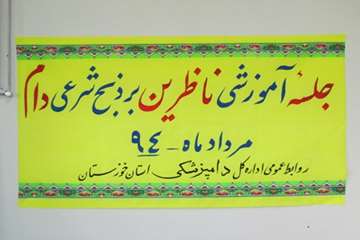 جلسهٔ آموزشی ناظرین بر ذبح شرعی دام
مرداد ماه - ۹۴
روابط عمومی اداره کل دامپزشکی استان خوزستان